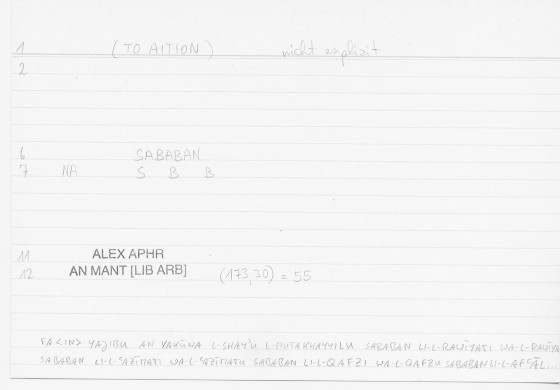 1 (TO AITION) nicht explizit
2
6 SABABAN
7 NA S B B
11 ALEX APHR
12 AN MANT [LIB ARB] (173,30) = 55
FA<IN> YAJIBU AN YAKŪNA L-SHAY'U L-MUTAKHAYYILU SABABAN LI-L-RAWĪYATI WA-L-RAWĪYA
SABABAN LI-L-ʿAZĪMATI WA-L-ʿAZĪMATU SABABAN LI-L-QAFZI WA-L-QAFZU SABABAN LI-L-AFʿĀL